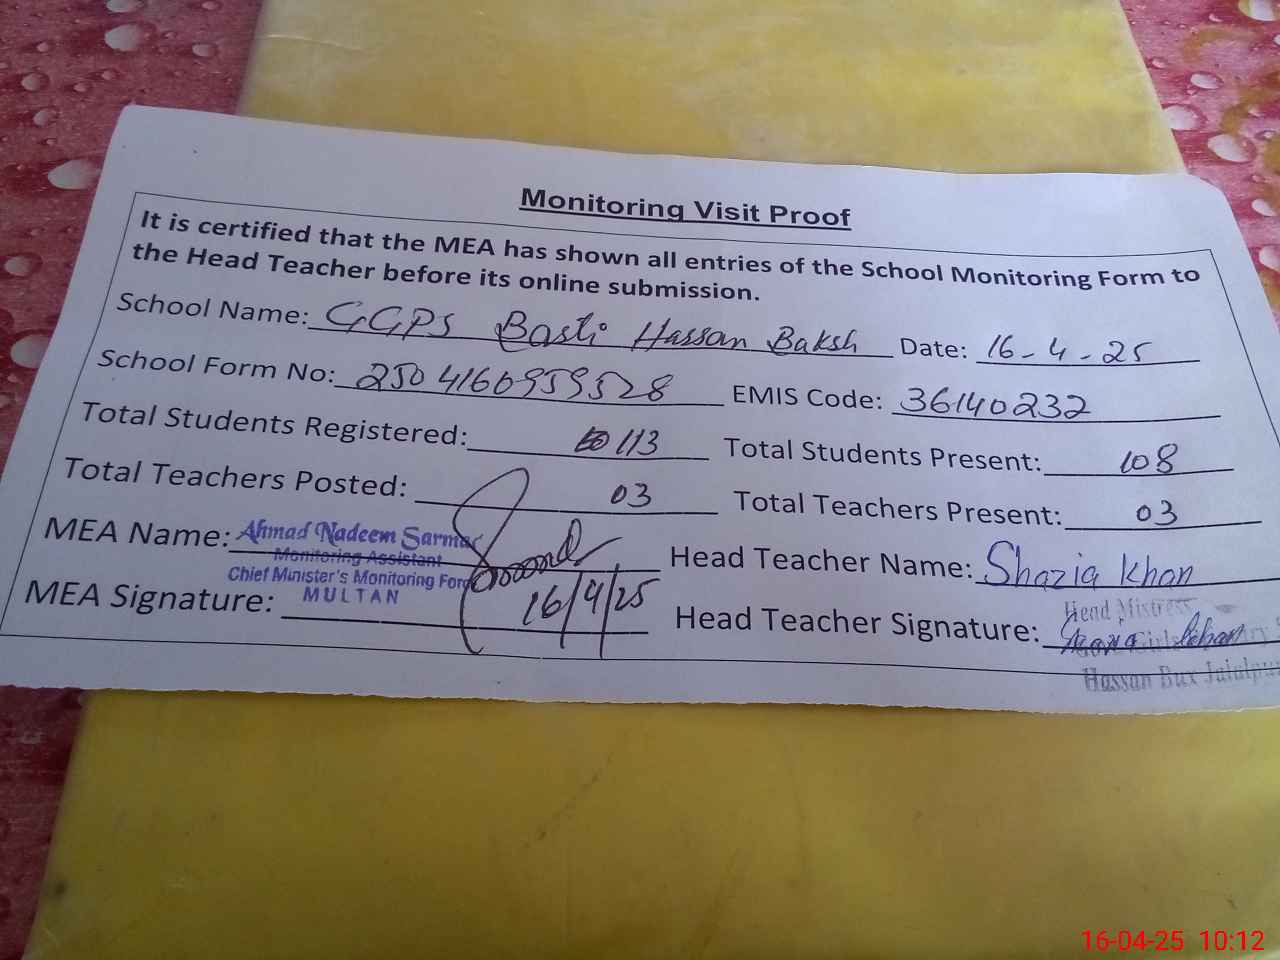 Monitoring Visit Proof
It is certified that the MEA has shown all entries of the School Monitoring Form to
the Head Teacher before its online submission.
School Name: GGPS Basti Hassan Baksh Date: 16-4-25
School Form No: 2504160959528 EMIS Code: 36140232
Total Students Registered: 113 Total Students Present: 108
Total Teachers Posted: 03 Total Teachers Present: 03
MEA Name: Ahmad Nadeem Sarmad Head Teacher Name: Shazia Khan
Monitoring Assistant
Chief Minister's Monitoring Force
MULTAN
MEA Signature: 16/4/25 Head Teacher Signature: Shazia Khan
Head Mistress
Hassan Bux Jalalpur
16-04-25 10:12